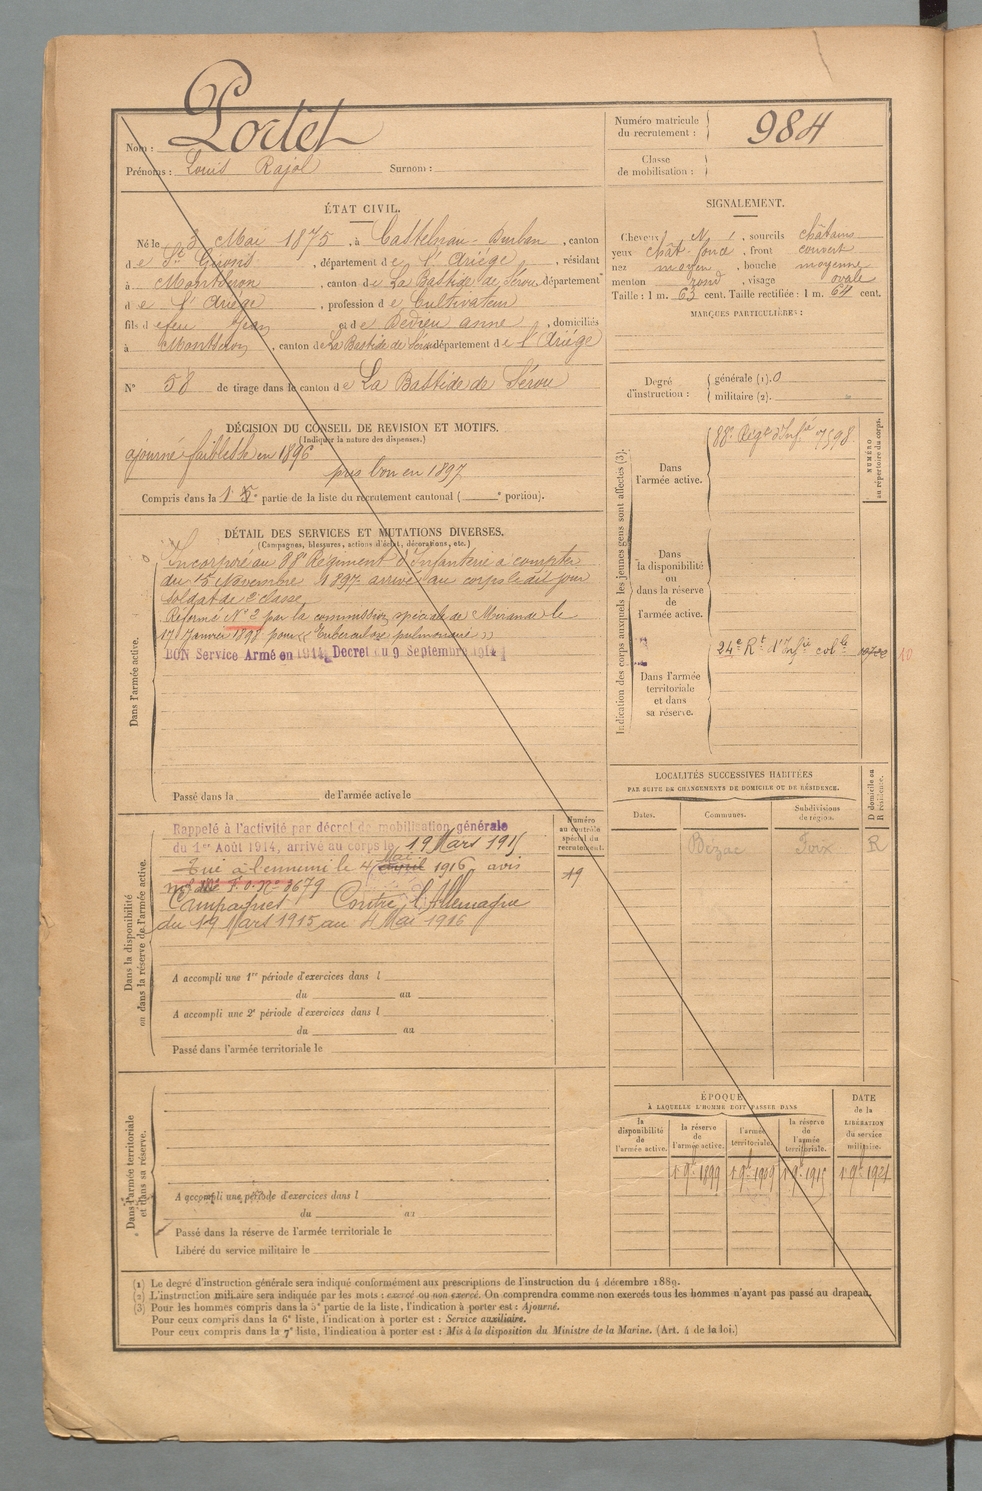 Nom : Portet
Prénoms : Louis Rajol Surnom :
Numéro matricule du recrutement : 984
Classe de mobilisation :
ÉTAT CIVIL.
Né le 3 Mai 1875, à Castelnau-Durban, canton
de St Girons, département de l'Ariège, résidant
à Montseron, canton de La Bastide de Sérou département
de l'Ariège, profession de Cultivateur
fils de feu Jean et de Dedieu anne, domiciliés
à Montseron, canton de La Bastide de Sérou département de l'Ariège
N° 58 de tirage dans le canton de La Bastide de Sérou
SIGNALEMENT.
Cheveux N, sourcils châtains
yeux chât foncé, front couvert
nez moyen, bouche moyenne
menton rond, visage ovale
Taille : 1 m. 63 cent. Taille rectifiée : 1 m. 64 cent.
MARQUES PARTICULIÈRES :
Degré d'instruction : générale (1). 0
militaire (2). "
DÉCISION DU CONSEIL DE REVISION ET MOTIFS.
(Indiquer la nature des dispenses.)
ajourné faiblesse en 1896
pris bon en 1897
Compris dans la 1 5e partie de la liste du recrutement cantonal ( e portion).
DÉTAIL DES SERVICES ET MUTATIONS DIVERSES.
(Campagnes, blessures, actions d'éclat, décorations, etc.)
Dans l'armée active.
Incorporé au 88e Régiment d'Infanterie à compter
du 15 Novembre 1897 arrivé au corps le dit jour
soldat de 2e classe
Réformé N° 2 par la commission spéciale de Mirande le
17 Janvier 1898 pour « Tuberculose pulmonaire »
BON Service Armé en 1914, Decret du 9 Septembre 1914
Passé dans la de l'armée active le
Indication des corps auxquels les jeunes gens sont affectés (3).
Dans l'armée active.
88e Régt d'Infie 7598
NUMÉRO au répertoire du corps.
Dans la disponibilité ou dans la réserve de l'armée active.
Dans l'armée territoriale et dans sa réserve.
24e Rt d'Infie colle 10
LOCALITÉS SUCCESSIVES HABITÉES
PAR SUITE DE CHANGEMENTS DE DOMICILE OU DE RÉSIDENCE.
Dates. Communes. Subdivisions de région. D domicile ou R résidence.
Bézac Foix R
Dans la disponibilité ou dans la réserve de l'armée active.
Numéro au contrôle spécial du recrutement.
19
Rappelé à l'activité par décret de mobilisation générale
du 1er Août 1914, arrivé au corps le 19 Mars 1915
Tué à l'ennemi le 4 Mai avril 1916, avis
N° 3679
Campagnes Contre l'Allemagne
du 19 Mars 1915 au 4 Mai 1916
A accompli une 1re période d'exercices dans l
du au
A accompli une 2e période d'exercices dans l
du au
Passé dans l'armée territoriale le
Dans l'armée territoriale et dans sa réserve.
A accompli une période d'exercices dans l
du au
Passé dans la réserve de l'armée territoriale le
Libéré du service militaire le
ÉPOQUE
À LAQUELLE L'HOMME DOIT PASSER DANS
la disponibilité de l'armée active. la réserve de l'armée active. l'armée territoriale. la réserve de l'armée territoriale.
DATE de la LIBÉRATION du service militaire.
1 9bre 1899 1 9bre 1909 1 9bre 1915 1 9bre 1921
(1) Le degré d'instruction générale sera indiqué conformément aux prescriptions de l'instruction du 4 décembre 1889.
(2) L'instruction militaire sera indiquée par les mots : exercé ou non exercé. On comprendra comme non exercés tous les hommes n'ayant pas passé au drapeau.
(3) Pour les hommes compris dans la 5e partie de la liste, l'indication à porter est : Ajourné.
Pour ceux compris dans la 6e liste, l'indication à porter est : Service auxiliaire.
Pour ceux compris dans la 7e liste, l'indication à porter est : Mis à la disposition du Ministre de la Marine. (Art. 4 de la loi.)